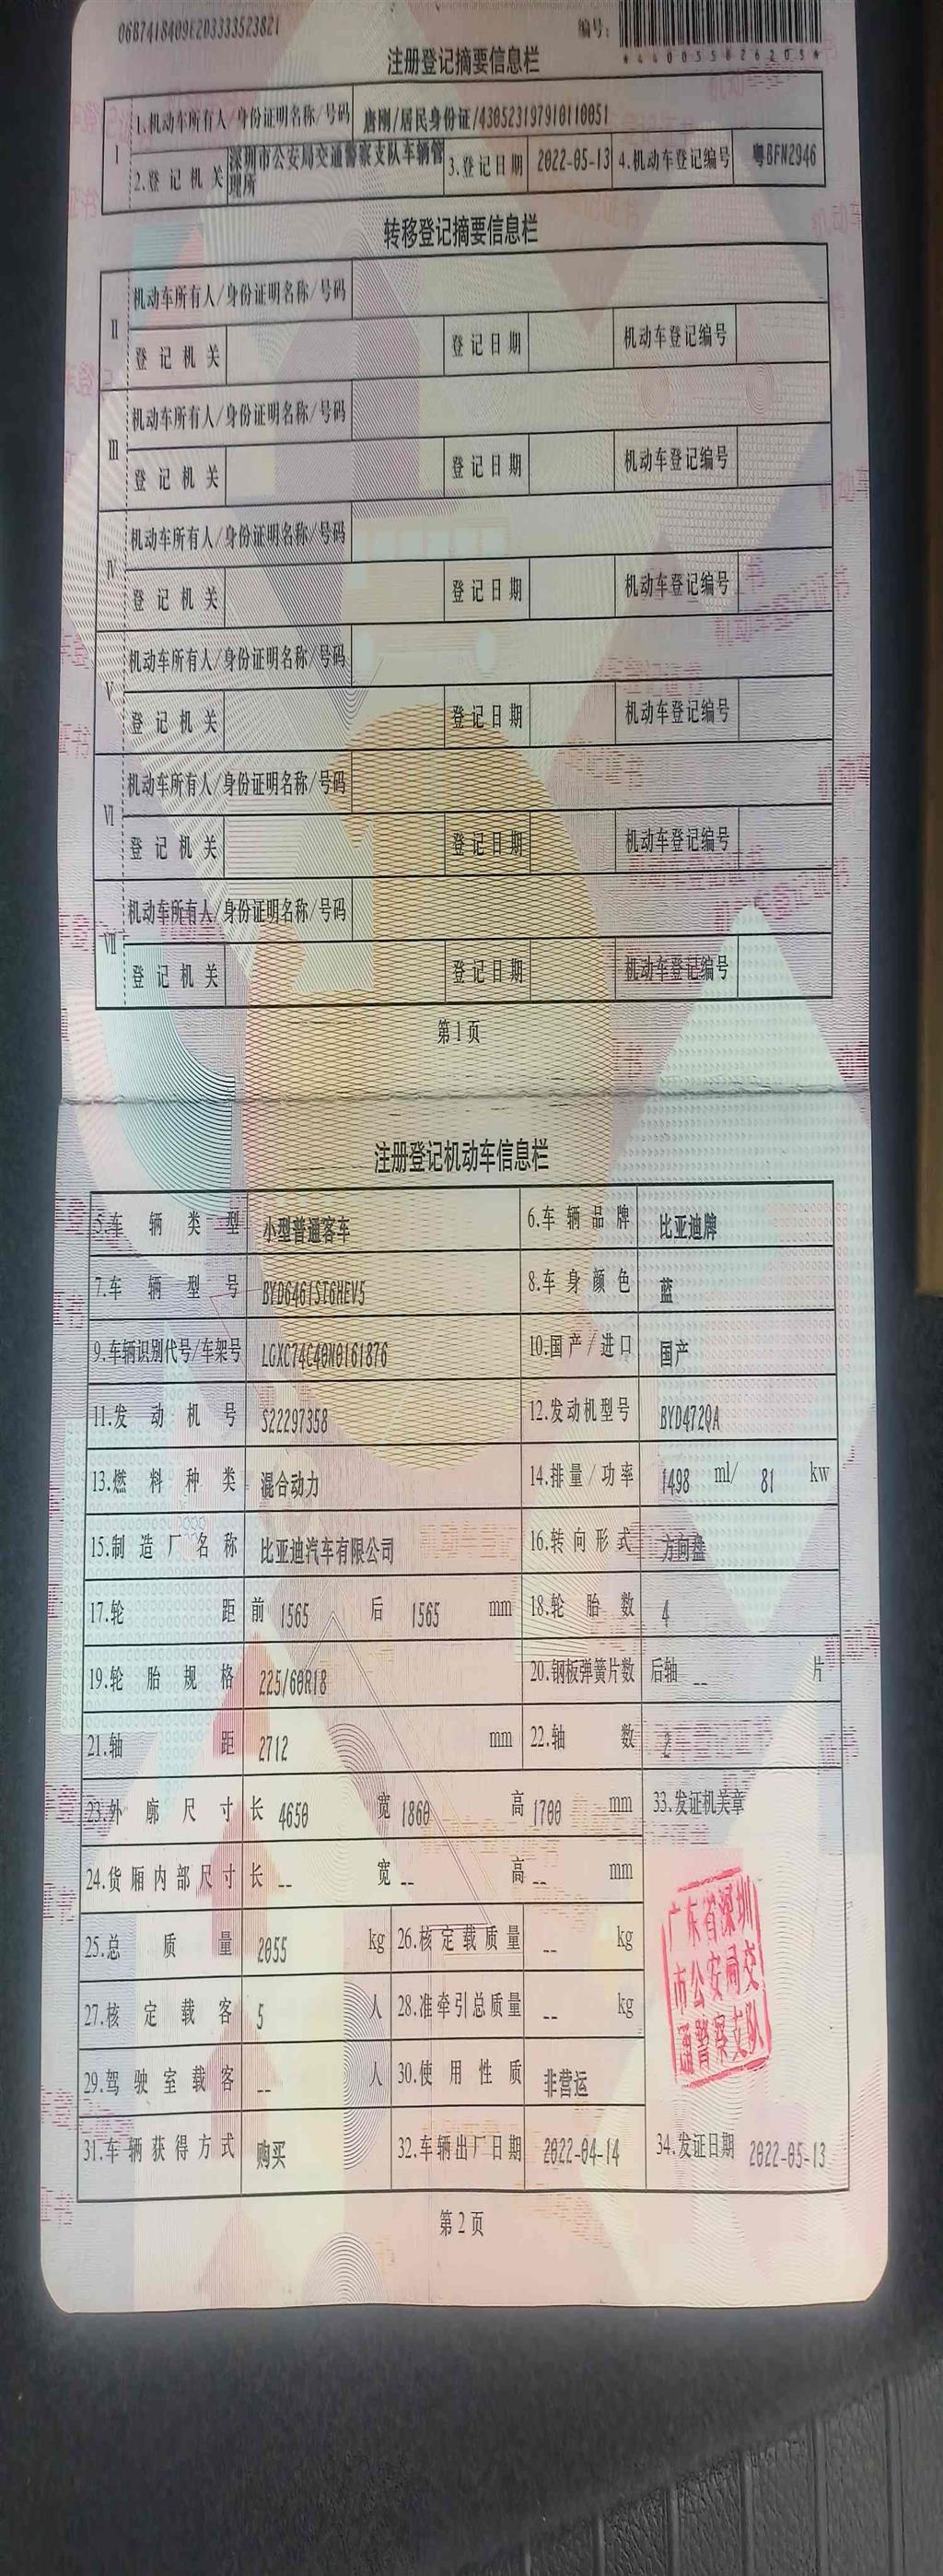 06B7418409E203333523821
编号:
*440055826205*
注册登记摘要信息栏
I 1.机动车所有人/身份证明名称/号码 唐刚/居民身份证/430523197910110051
2.登记机关 深圳市公安局交通警察支队车辆管理所 3.登记日期 2022-05-13 4.机动车登记编号 粤BFN2946
转移登记摘要信息栏
II 机动车所有人/身份证明名称/号码
登记机关 登记日期 机动车登记编号
III 机动车所有人/身份证明名称/号码
登记机关 登记日期 机动车登记编号
IV 机动车所有人/身份证明名称/号码
登记机关 登记日期 机动车登记编号
V 机动车所有人/身份证明名称/号码
登记机关 登记日期 机动车登记编号
VI 机动车所有人/身份证明名称/号码
登记机关 登记日期 机动车登记编号
VII 机动车所有人/身份证明名称/号码
登记机关 登记日期 机动车登记编号
第1页
注册登记机动车信息栏
5.车辆类型 小型普通客车 6.车辆品牌 比亚迪牌
7.车辆型号 BYD6461ST6HEV5 8.车身颜色 蓝
9.车辆识别代号/车架号 LGXC74C40N0161876 10.国产/进口 国产
11.发动机号 S22297358 12.发动机型号 BYD472QA
13.燃料种类 混合动力 14.排量/功率 1498 ml/ 81 kw
15.制造厂名称 比亚迪汽车有限公司 16.转向形式 方向盘
17.轮距 前 1565 后 1565 mm 18.轮胎数 4
19.轮胎规格 225/60R18 20.钢板弹簧片数 后轴 -- 片
21.轴距 2712 mm 22.轴数 2
23.外廓尺寸 长 4650 宽 1860 高 1700 mm 33.发证机关章
24.货厢内部尺寸 长 -- 宽 -- 高 -- mm
25.总质量 2055 kg 26.核定载质量 -- kg
广东省深圳
市公安局交
通警察支队
27.核定载客 5 人 28.准牵引总质量 -- kg
29.驾驶室载客 -- 人 30.使用性质 非营运
31.车辆获得方式 购买 32.车辆出厂日期 2022-04-14 34.发证日期 2022-05-13
第2页